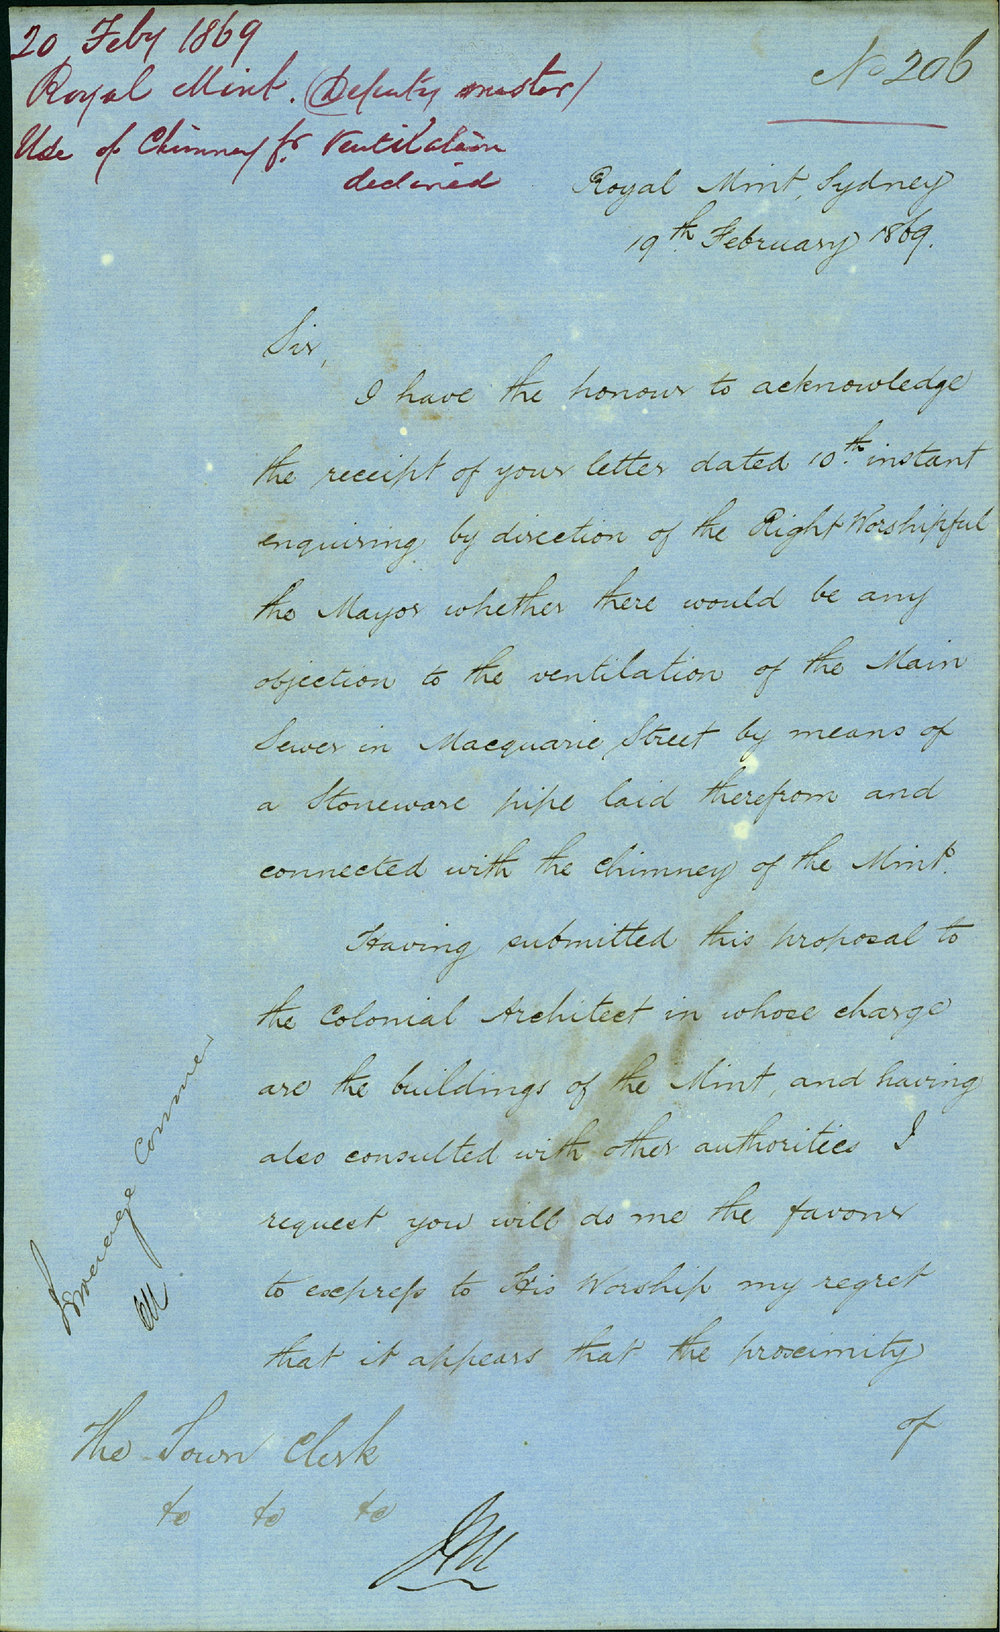 20 Feby 1869
Royal Mint. (Deputy master)
Use of Chimney fr Ventilation
declined
No 206
Royal Mint, Sydney
19th February 1869.
Sir,
I have the honour to acknowledge
the receipt of your letter dated 10th instant
enquiring by direction of the Right Worshipful
the Mayor whether there would be any
objection to the ventilation of the Main
Sewer in Macquarie Street by means of
a Stoneware pipe laid therefrom and
connected with the Chimney of the Mint.
Having submitted this proposal to
the Colonial Architect in whose charge
are the buildings of the Mint, and having
also consulted with other authorities I
request you will do me the favour
to express to His Worship my regret
that it appears that the proximity
of
Sewerage Comme
The Town Clerk
&c &c &c